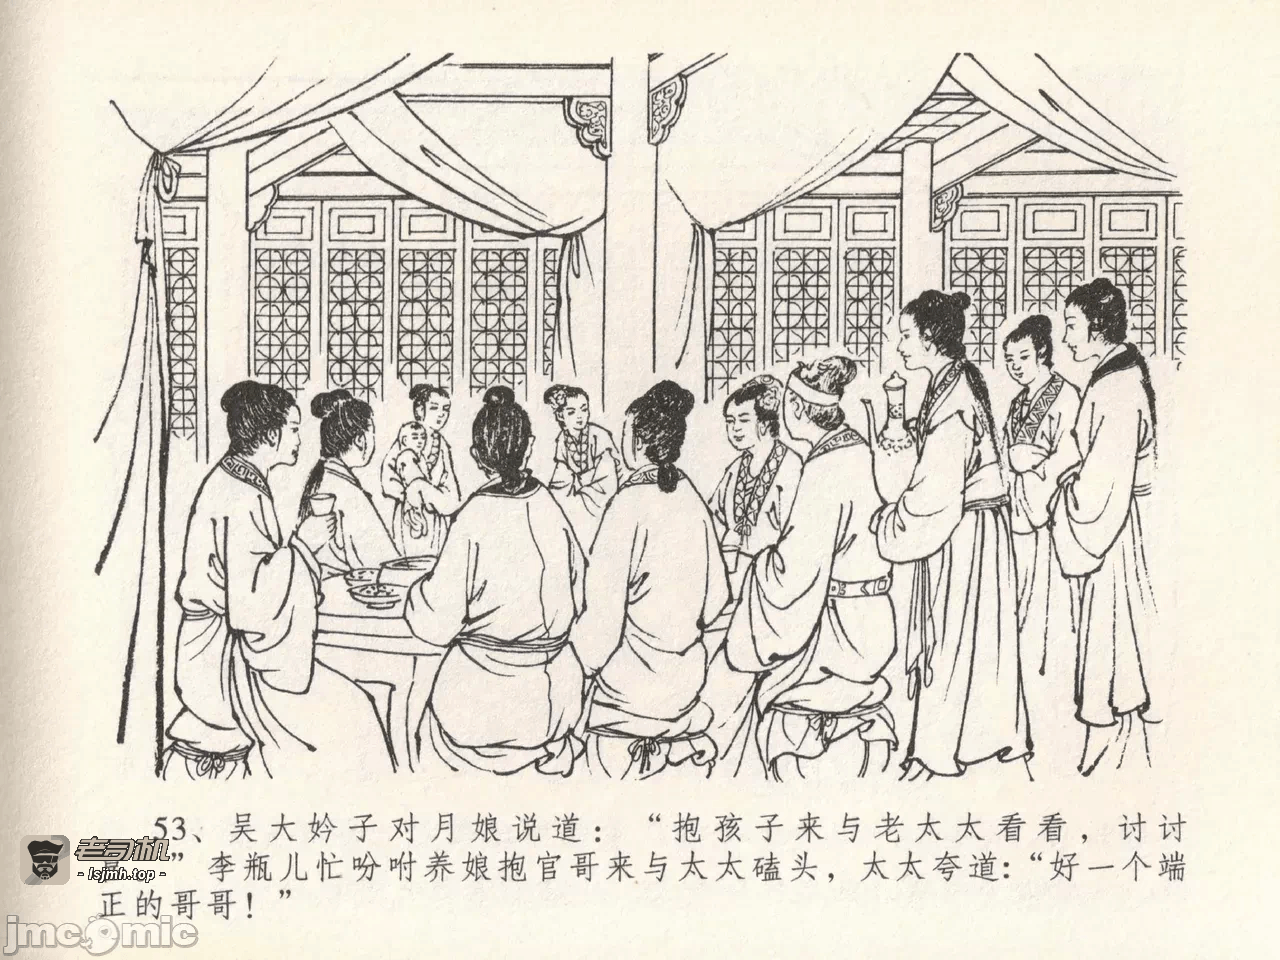 53、吴大妗子对月娘说道：“抱孩子来与老太太看看，讨讨
”李瓶儿忙吩咐养娘抱官哥来与太太磕头，太太夸道：“好一个端
正的哥哥！”
老司机
- lsjmh.top -
jmcomic